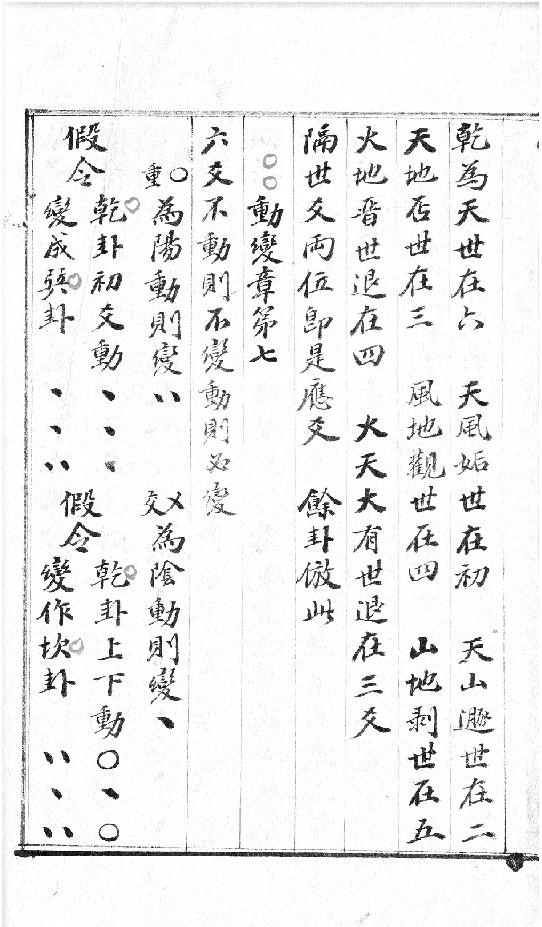 乾為天世在六　天風姤世在初　天山遯世在二
天地否世在三　風地觀世在四　山地剥世在五
火地晋世退在四　火天大有世退在三爻
隔世爻両位即是應爻　餘卦倣此
○○動變章第七
六爻不動則不變動則必变
○重為陽動則變、、　乂交為陰動則變、
假令　乾卦初爻動　、、、　假令　乾卦上下動○、○
變成巽卦　、、、、　變作坎卦　、、、、、